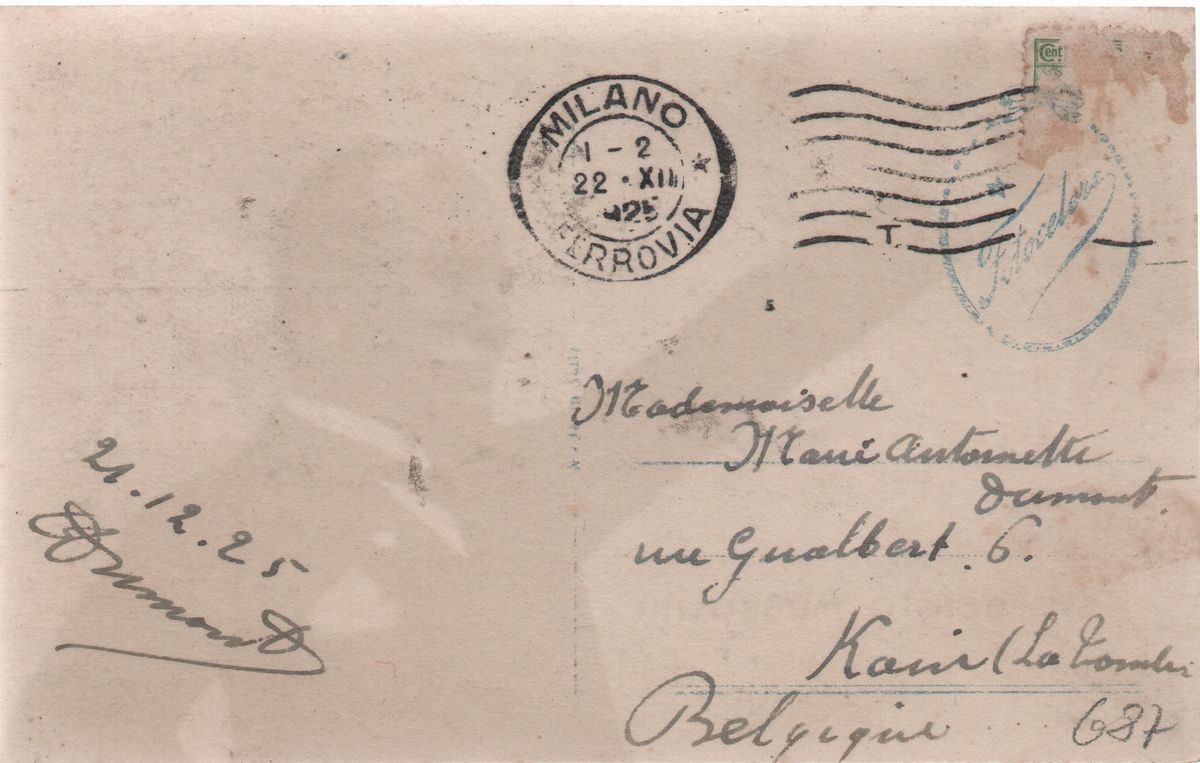 Cent
MILANO
1 - 2
22 · XII
925
FERROVIA
T.
Fotocelere
Mademoiselle
Marie Antoinette
Dumont.
rue Gualbert. 6.
Kain (La Tombe
Belgique
687
21.12.25
Dumont